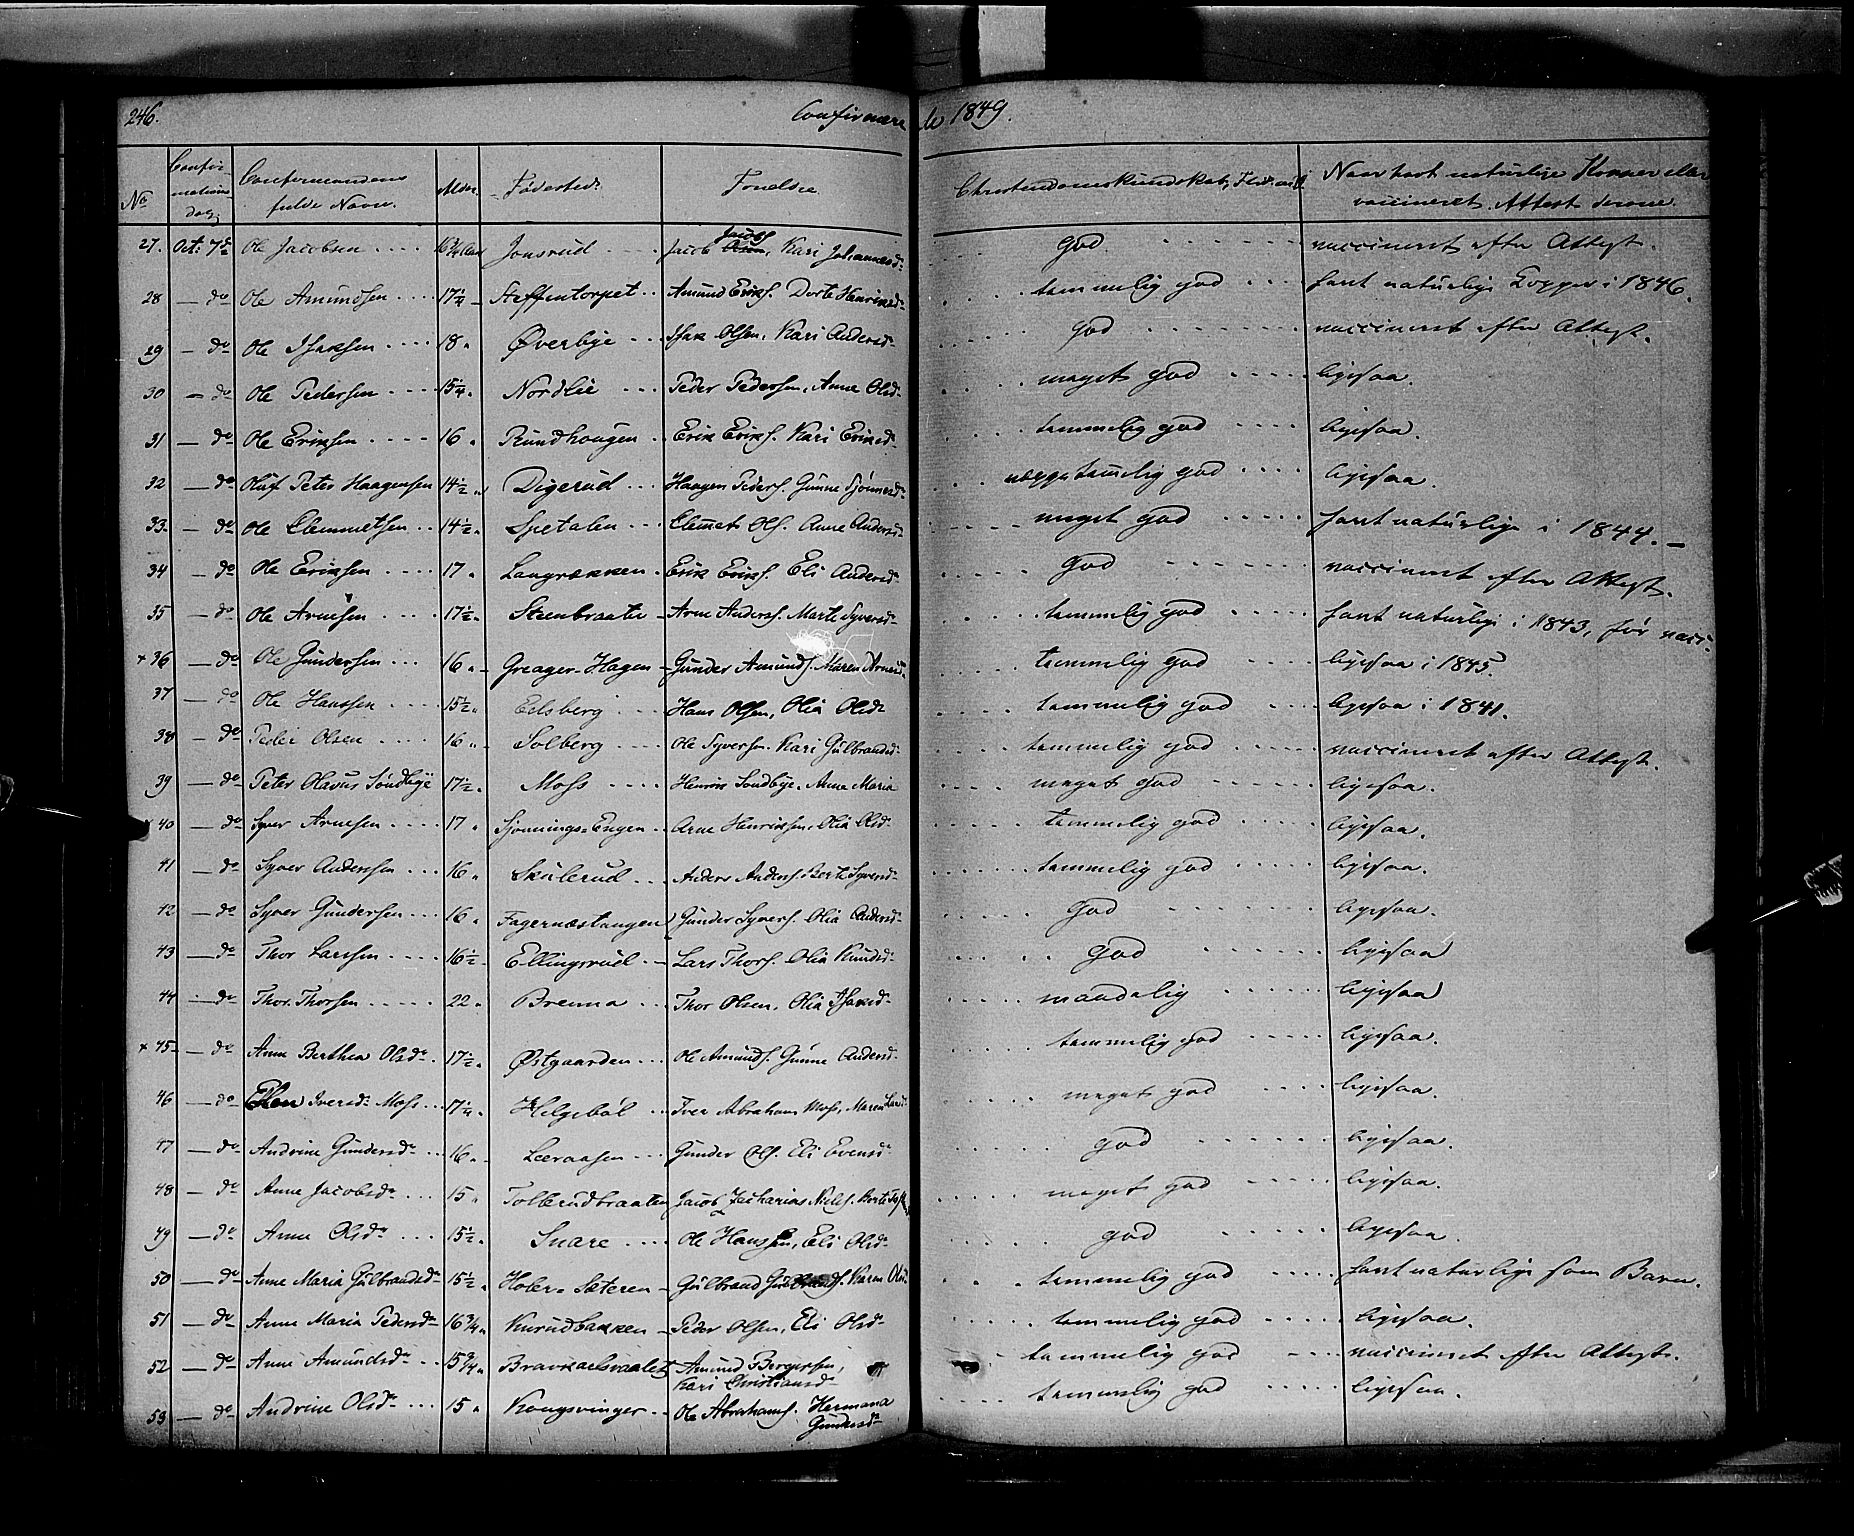 246. Confirmerede 1849.
No Confirmations dag. Confirmandens fulde Navn. Alder. Fødested. Forældre Christendomskundskab, Flid Naar havt naturlige Kopper eller vaccineret. Attest derom.
27. Oct: 7de Ole Jacobsen 16 3/4 Aar Jonsrud Jacob Jacobs. Kari Johannesd. god vaccineret efter Attest.
28 — do Ole Amundsen 17 1/4 Steffentorpet Amund Eriks. Dorte Henriksd. temmelig god havt naturlige Kopper i 1846.
29 — do Ole Isaksen 18 Øverbye Isak Olsen, Kari Andersd. god vaccineret efter Attest.
30 — do Ole Pedersen 15 1/4 Nordlie Peder Pedersen, Anne Olsd. meget god ligesaa.
31 — do Ole Eriksen 16 Rundhougen Erik Eriks. Kari Eriksd. temmelig god ligesaa.
32 — do Oluf Peter Haagensen 14 1/2 Digerud Haagen Peders. Gunne temelig god ligesaa.
33. — do Ole Clemmetsen 14 1/2 Spetalen Clemet Ols. Anne Andersd. meget god havt naturlige i 1844. —
34 — do Ole Eriksen 17 Langrækken Erik Eriks. Eli Andersd. god vaccineret efter Attest.
35 — do Ole Arnesen 17 1/2 Steenbraate Arne Anders. Marte Syversd. temmelig god havt naturlige i 1843, før vacc.
+ 36 — do Ole Gundersen 16 Greager-Hagen Gunder Amunds. Maren Arnesd. temmelig god ligesaa i 1845.
37 — do Ole Hanssen 15 1/2 Eidsberg Hans Olsen, Olia Olsd. temmelig god ligesaa i 1841.
38 — do Peder Olsen 16 Solberg Ole Syversen. Kari Gulbrandsd. temmelig god vaccineret efter Attest.
39 — do Peter Olavus Sundbye 17 1/2 Moss Henrik Sundbye, Anne Maria meget god ligesaa.
+ 40 — do Syver Arnesen 17 Sjonnings-Engen Arne Henriksen, Olia Olsd. temmelig god ligesaa.
41 — do Syver Andersen 16 Skulerud Anders Anders. Berte Syversd. temmelig god ligesaa.
42 — do Syver Gundersen 16 Fagernæstangen Gunder Syvers. Olia Andersd. god ligesaa.
43 — do Thor Larssen 16 1/2 Ellingsrud Lars Thors. Olia Knudsd. god ligesaa
44 — do Thor Thorsen 22 Brenna Thor Olsen, Olia Isaksd. maadelig ligesaa
+ 45 — do Anne Berthea Olsd. 17 1/2 Østgaarden Ole Amunds. Gunne Andersd. temmelig god ligesaa.
46 — do Ellen Iversd. Moss 17 1/4 Helgebøl Iver Abraham Moss, Maren Larsd. meget god ligesaa.
47 — do Andrine Gundersd. 16 Leeraasen Gunder Ols. Eli Evensd. god ligesaa.
48 — do Anne Jacobsd. 15 Tollerudbraaten Jacob Zacharias Niels. Berte meget god ligesaa.
49 — do Anne Olsd. 15 1/2 Snare Ole Hanssen, Eli Olsd. god ligesaa.
50 — do Anne Maria Gulbrandsd. 15 1/2 Holer-Sæteren Gulbrand Gulbrands. Karen Olsd. temmelig god havt naturlige som Barn.
51 — do Anne Maria Pedersd. 16 3/4 Knrudbakken Peder Olsen, Eli Olsd. temmelig god ligesaa.
52 — do Anne Amundsd. 15 3/4 Amund Bergersen, Kari Christiansd. temmelig god vaccineret efter Attest.
53 — do Andrine Olsd. 15 Kongsvinger Ole Abrahams. Hermana Gundersd. temmelig god ligesaa.